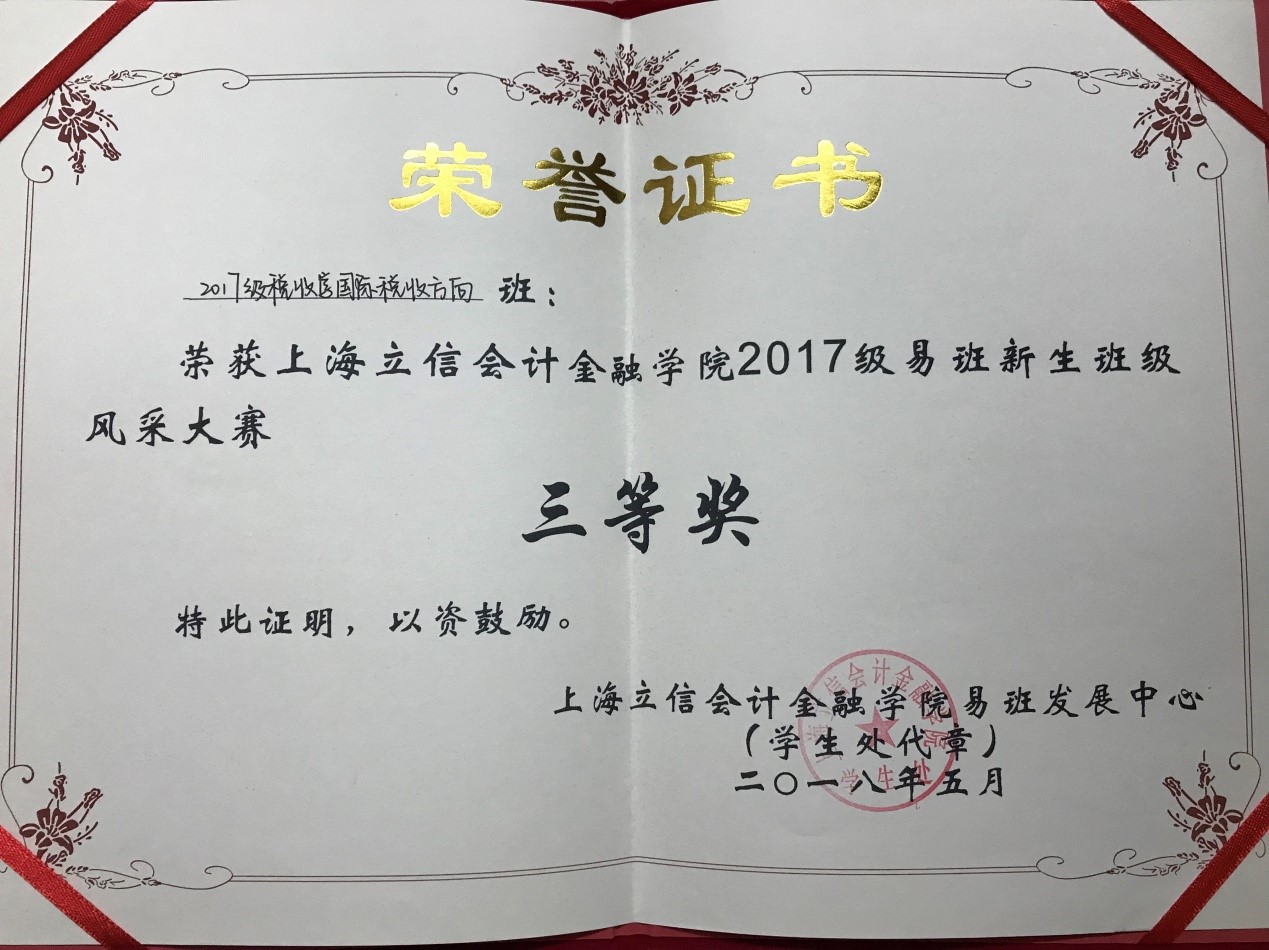 荣誉证书
2017级税收学国际税收方向 班：
荣获上海立信会计金融学院2017级易班新生班级
风采大赛
三等奖
特此证明，以资鼓励。
上海立信会计金融学院易班发展中心
（学生处代章）
二〇一八年五月
信会计金融学院
学生处